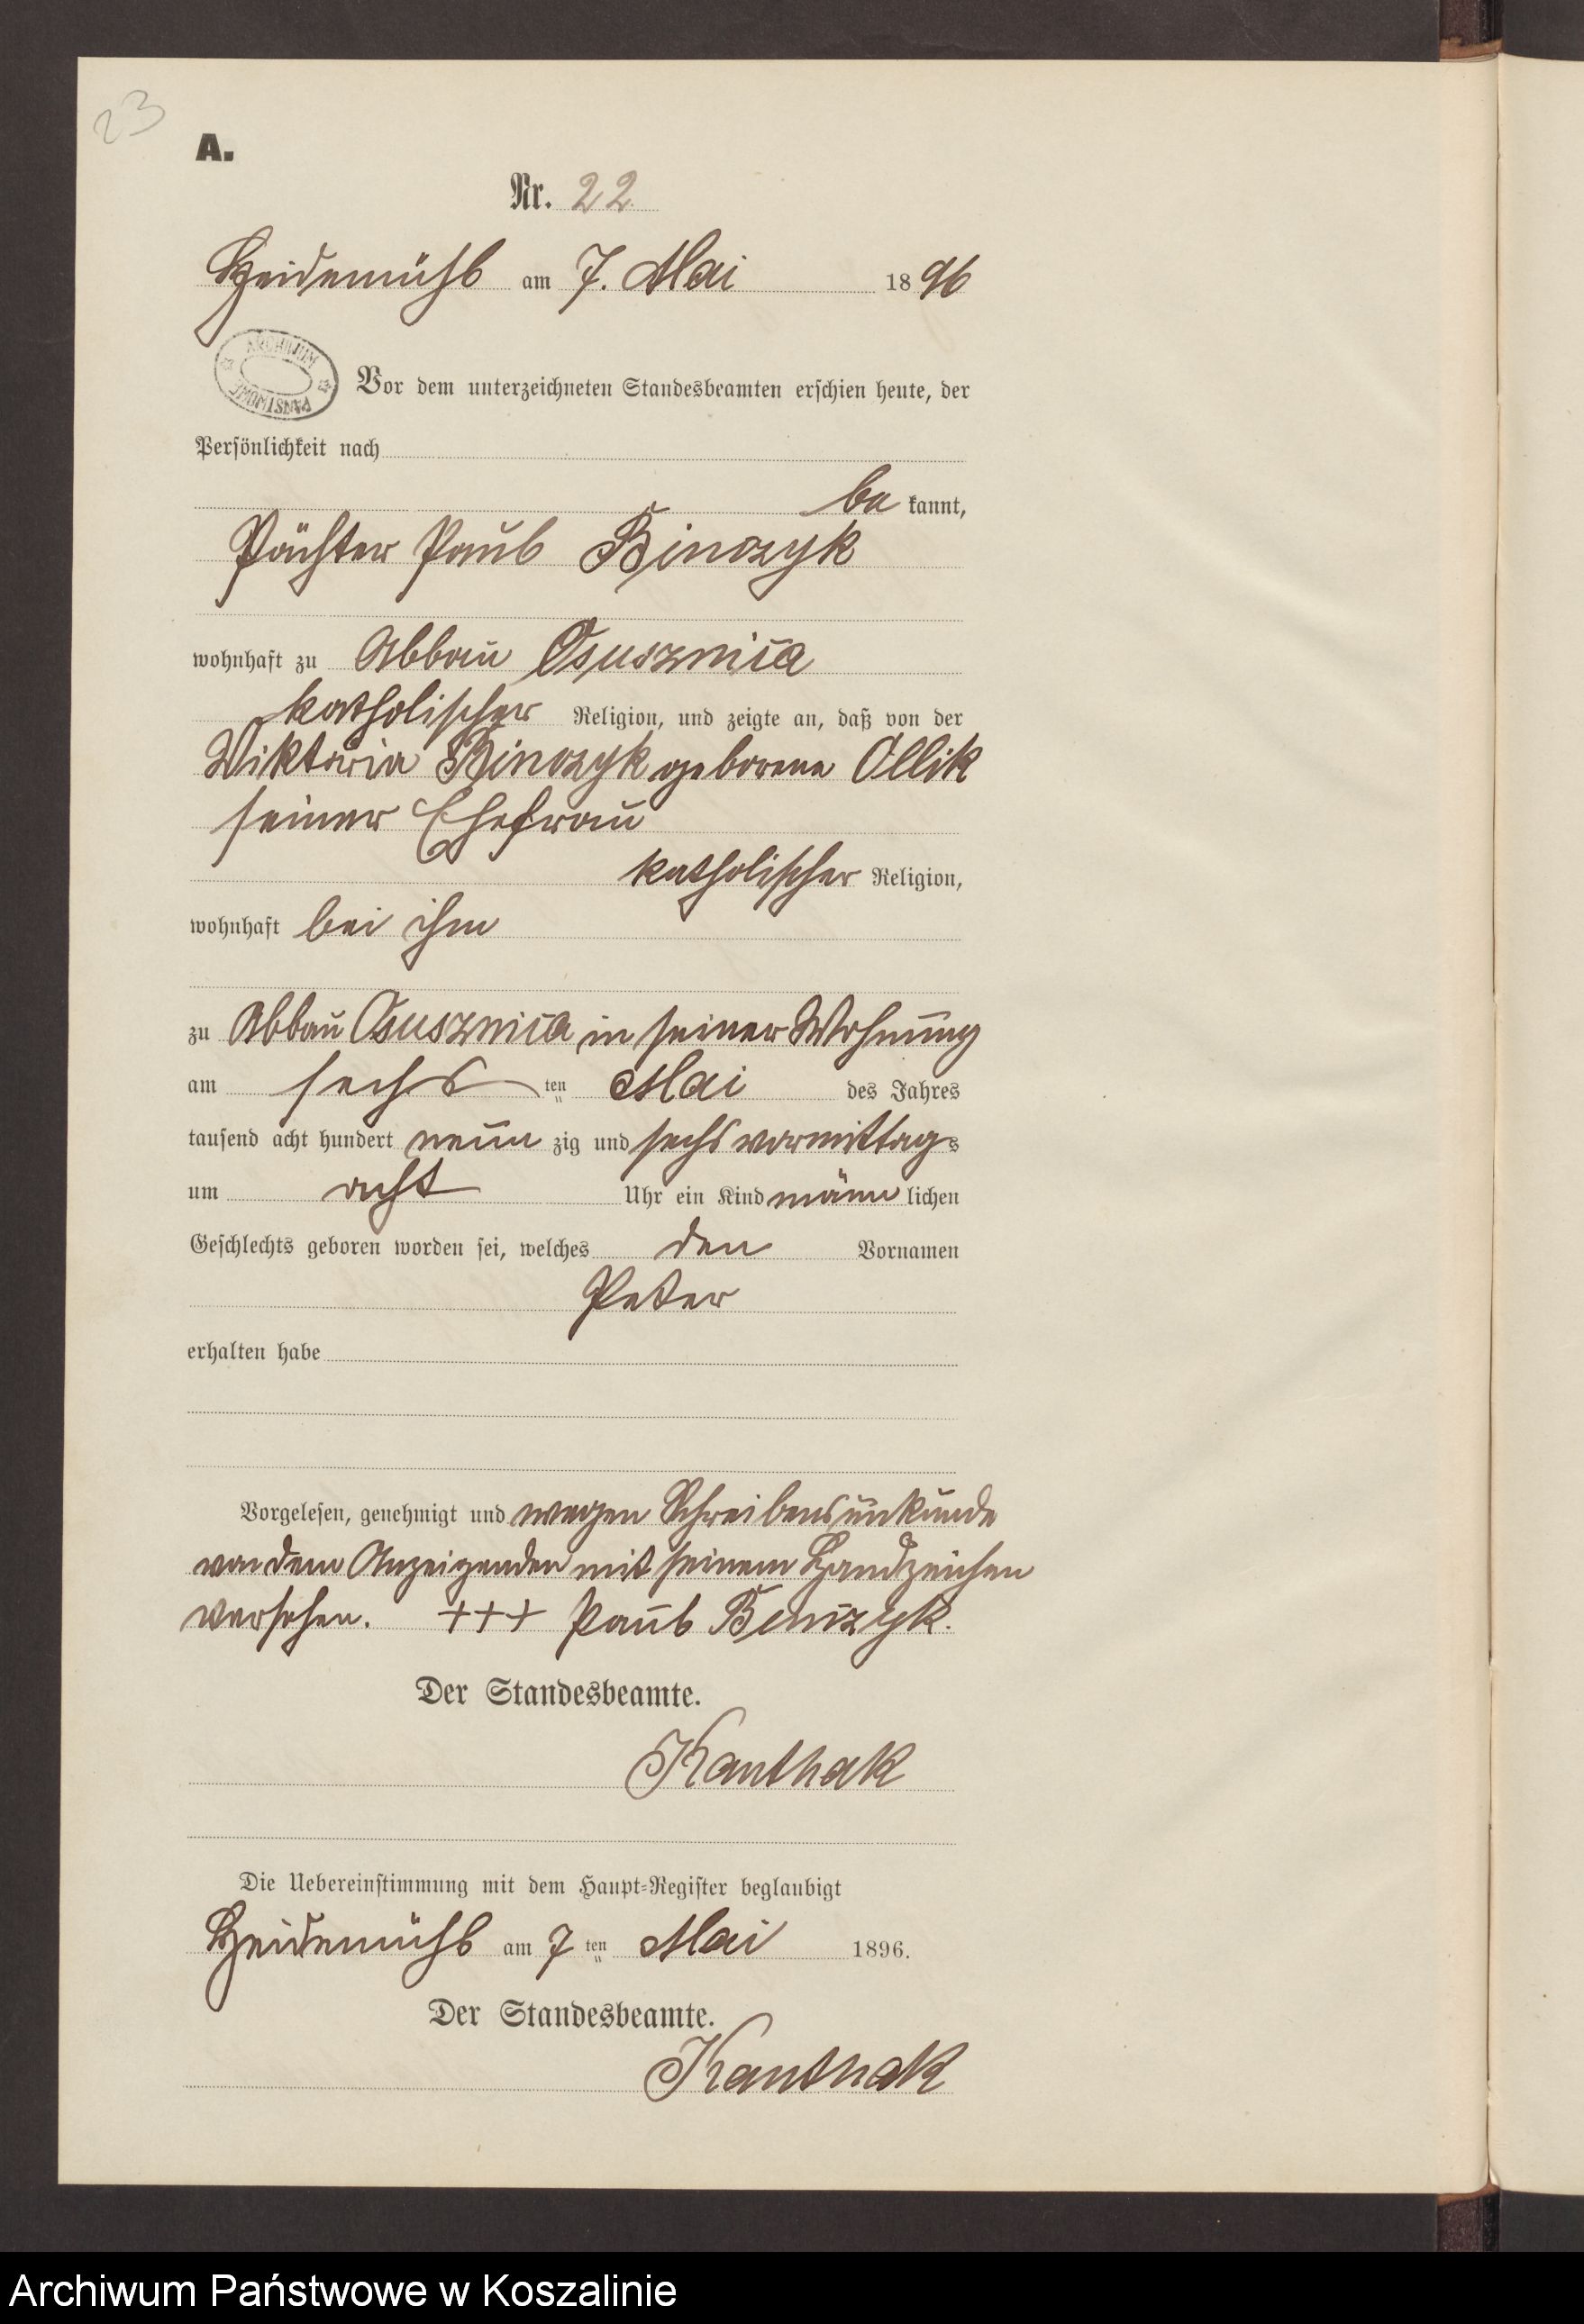 23
A.
Nr. 22.
Heidemühl am 7. Mai 1896
ARCHIWUM PAŃSTWOWE
Vor dem unterzeichneten Standesbeamten erschien heute, der
Persönlichkeit nach
be kannt,
Pächter Paul Binczyk
wohnhaft zu Abbau Osusznica
katholischer Religion, und zeigte an, daß von der
Viktoria Binczyk geborene Ollik
seiner Ehefrau
katholischer Religion,
wohnhaft bei ihm
zu Abbau Osusznica in seiner Wohnung
am sechs ten Mai des Jahres
tausend acht hundert neun zig und sechs vormittags
um acht Uhr ein Kind männ lichen
Geschlechts geboren worden sei, welches den Vornamen
Peter
erhalten habe
Vorgelesen, genehmigt und wegen Schreibensunkunde
von dem Anzeigenden mit seinem Handzeichen
versehen. +++ Paul Binczyk.
Der Standesbeamte.
Kanthak
Die Uebereinstimmung mit dem Haupt-Register beglaubigt
Heidemühl am 7 ten Mai 1896.
Der Standesbeamte.
Kanthak
Archiwum Państwowe w Koszalinie